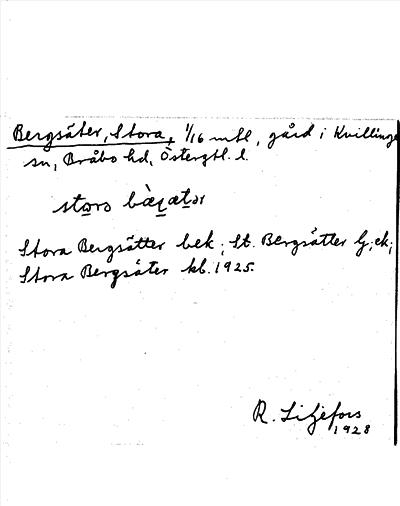 Bergsäter, Stora, 1/16 mtl, gård i Kvillinge
sn, Bråbo hd, Östergtl. l.
Stora Bergsätter bek; St. Bergsätter G; ek;
Stora Bergsäter kb. 1925.
R. Liljefors
1928